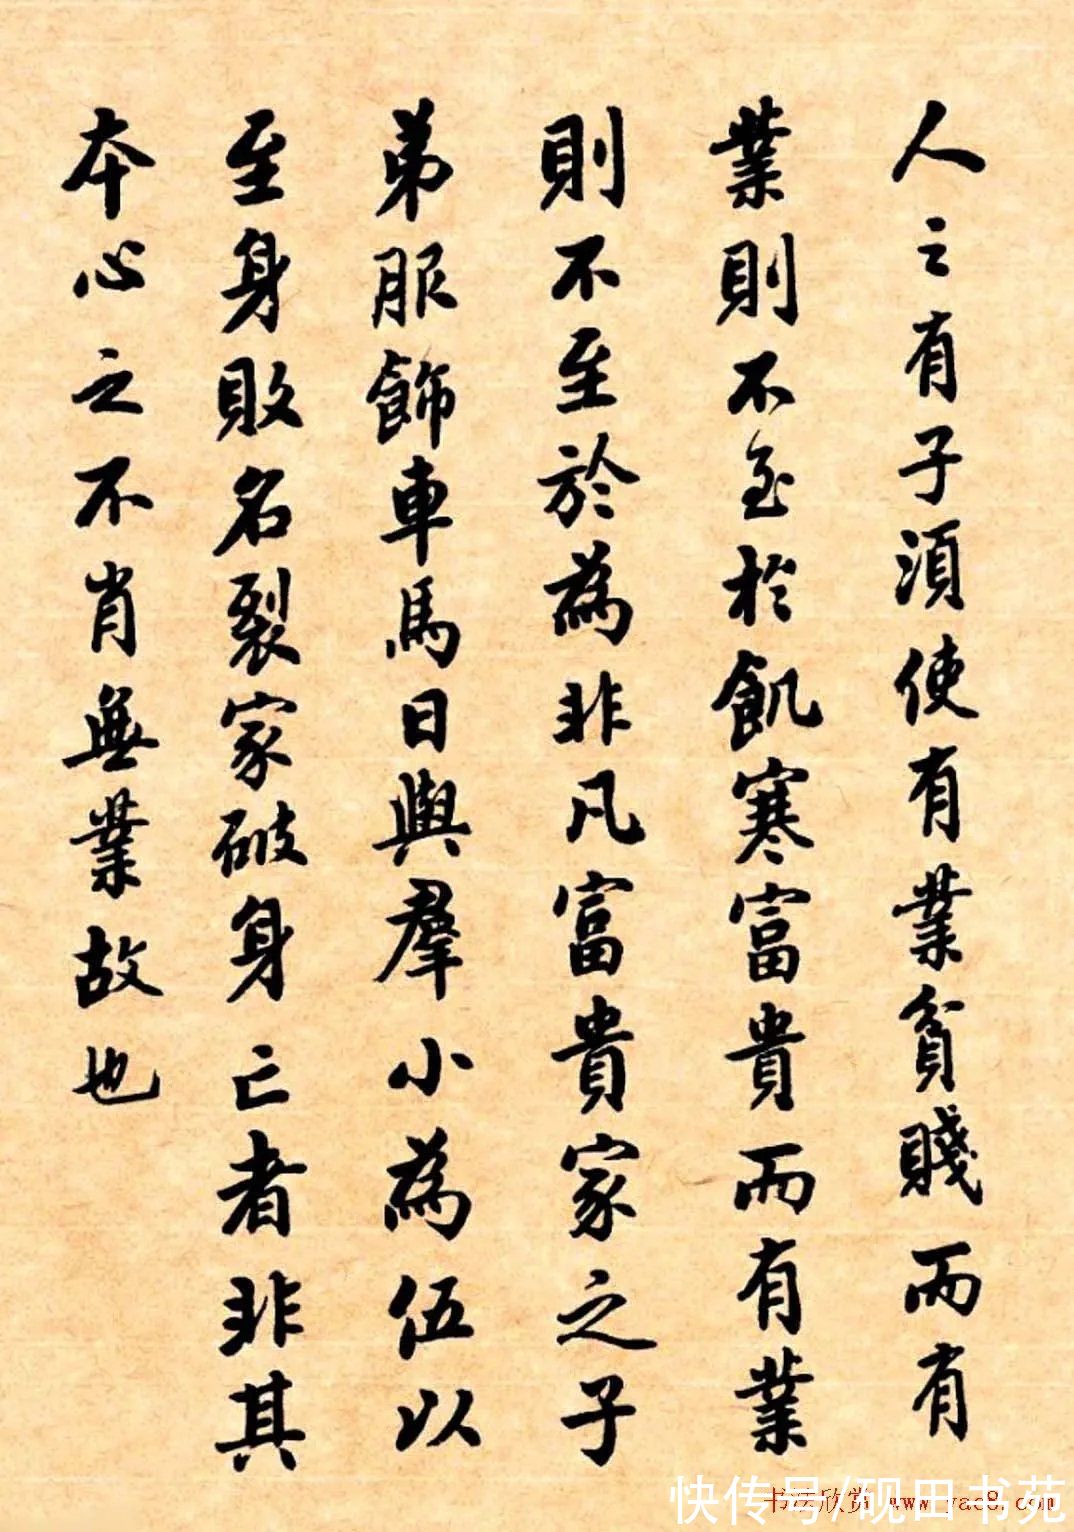 人之有子須使有業貧賤而有
業則不至於飢寒富貴而有業
則不至於為非凡富貴家之子
弟服飾車馬日與羣小為伍以
至身敗名裂家破身亡者非其
本心之不肖無業故也
书法欣赏 www.yac8.com
快传号/砚田书苑